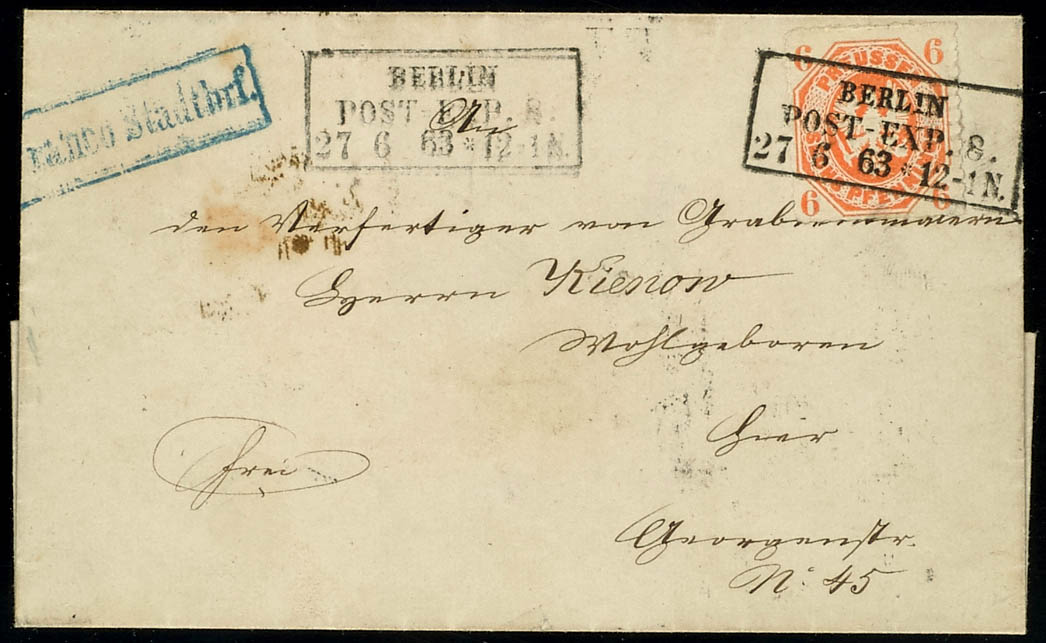 Franco Stadtbrf.
BERLIN
POST-EXP. 8.
27 6 63 * 12-1N.
6 6
PREUSSEN
BERLIN
POST-EXP. 8.
27 6 63 * 12-1N.
6 6
An
den Verfertiger von
Herrn Kienow
Wohlgeboren
hier
frei
Georgenstr.
No. 45